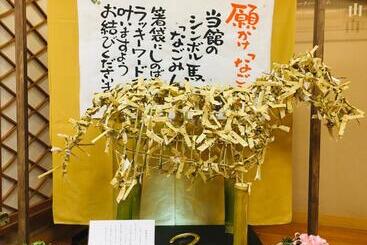 願かけ「なご
当館の
シンボル馬
「なごみん
箸袋にしのば
ラッキーワード
叶いますよう
お結びください